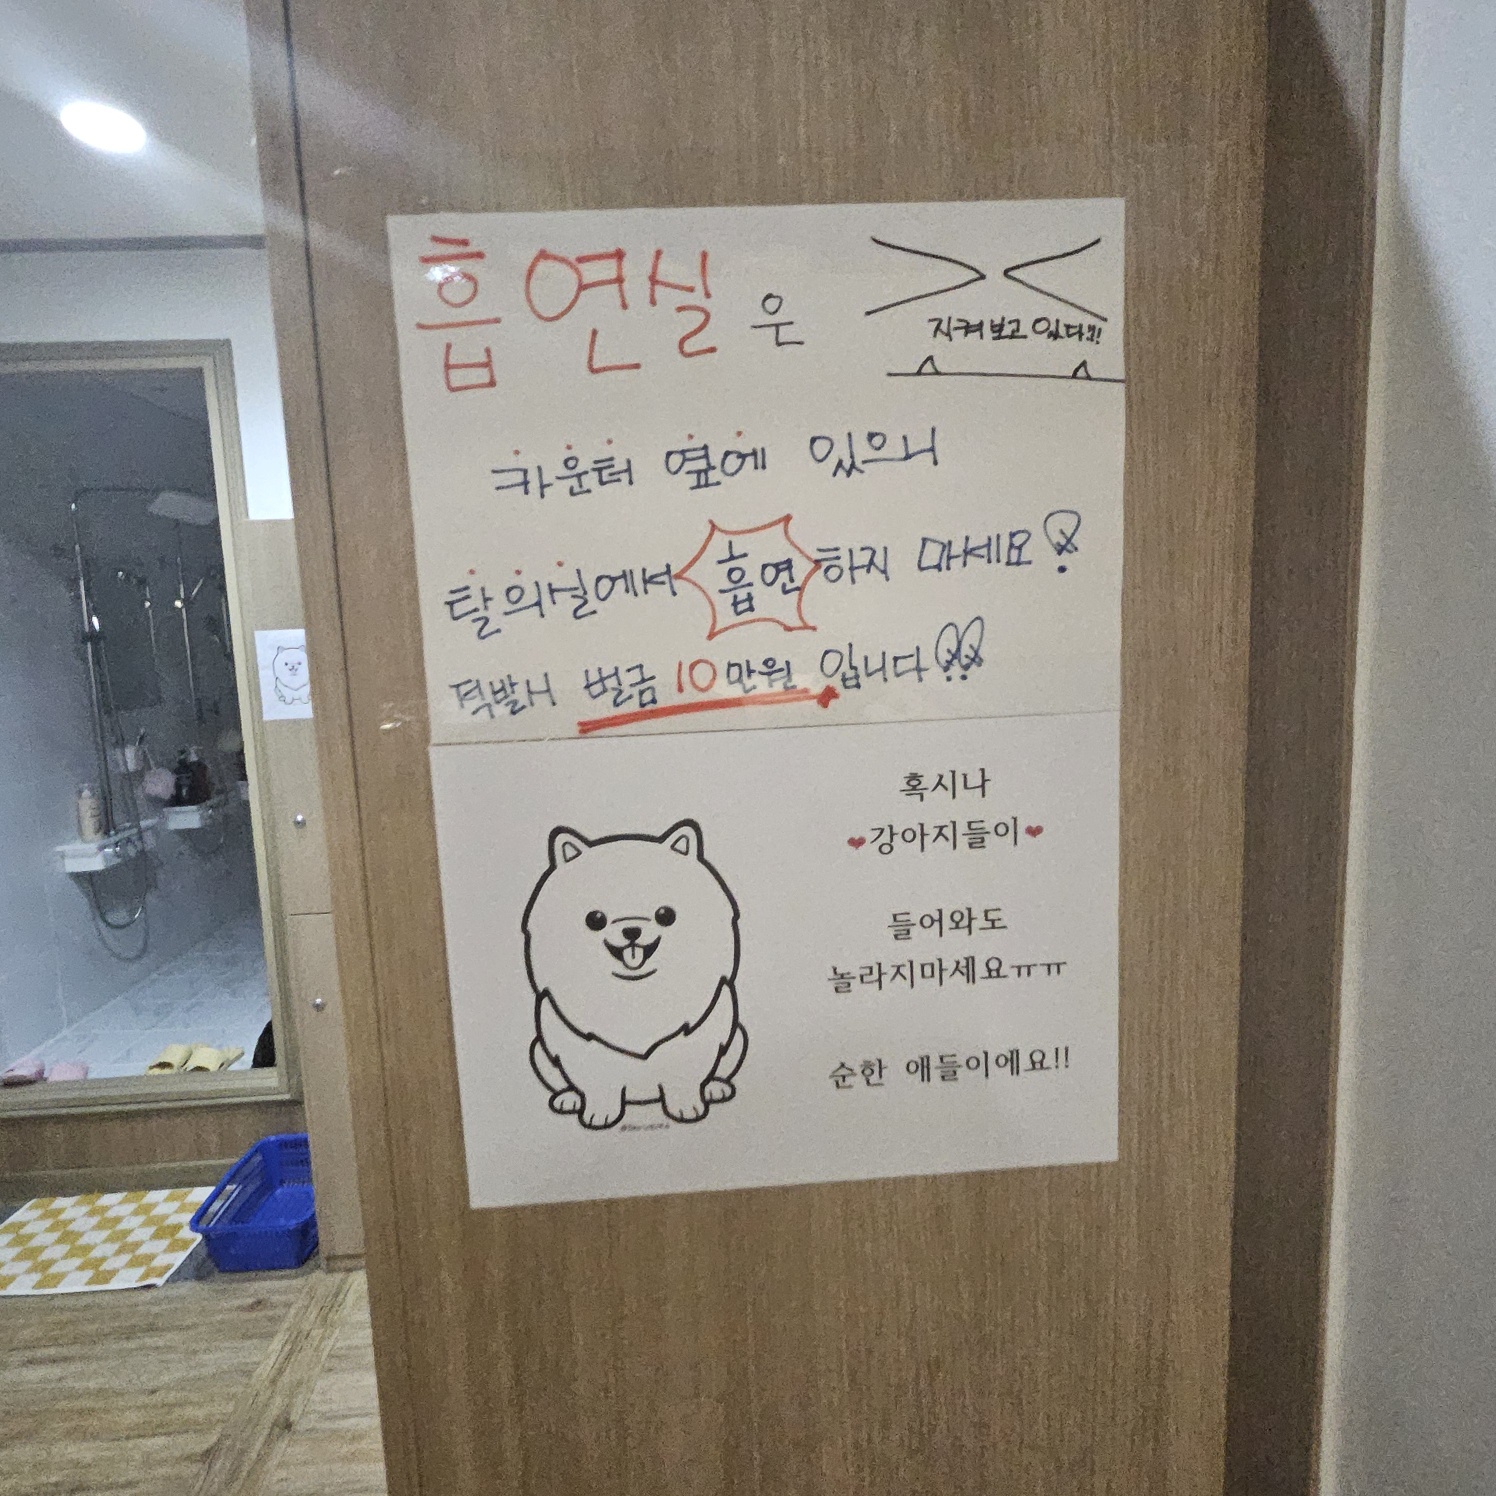 흡연실은
지켜보고 있다!!
카운터 옆에 있으니
탈의실에서 흡연하지 마세요!
적발시 벌금 10만원 입니다!!
혹시나
❤강아지들이❤
들어와도
놀라지마세요ㅠㅠ
순한 애들이에요!!